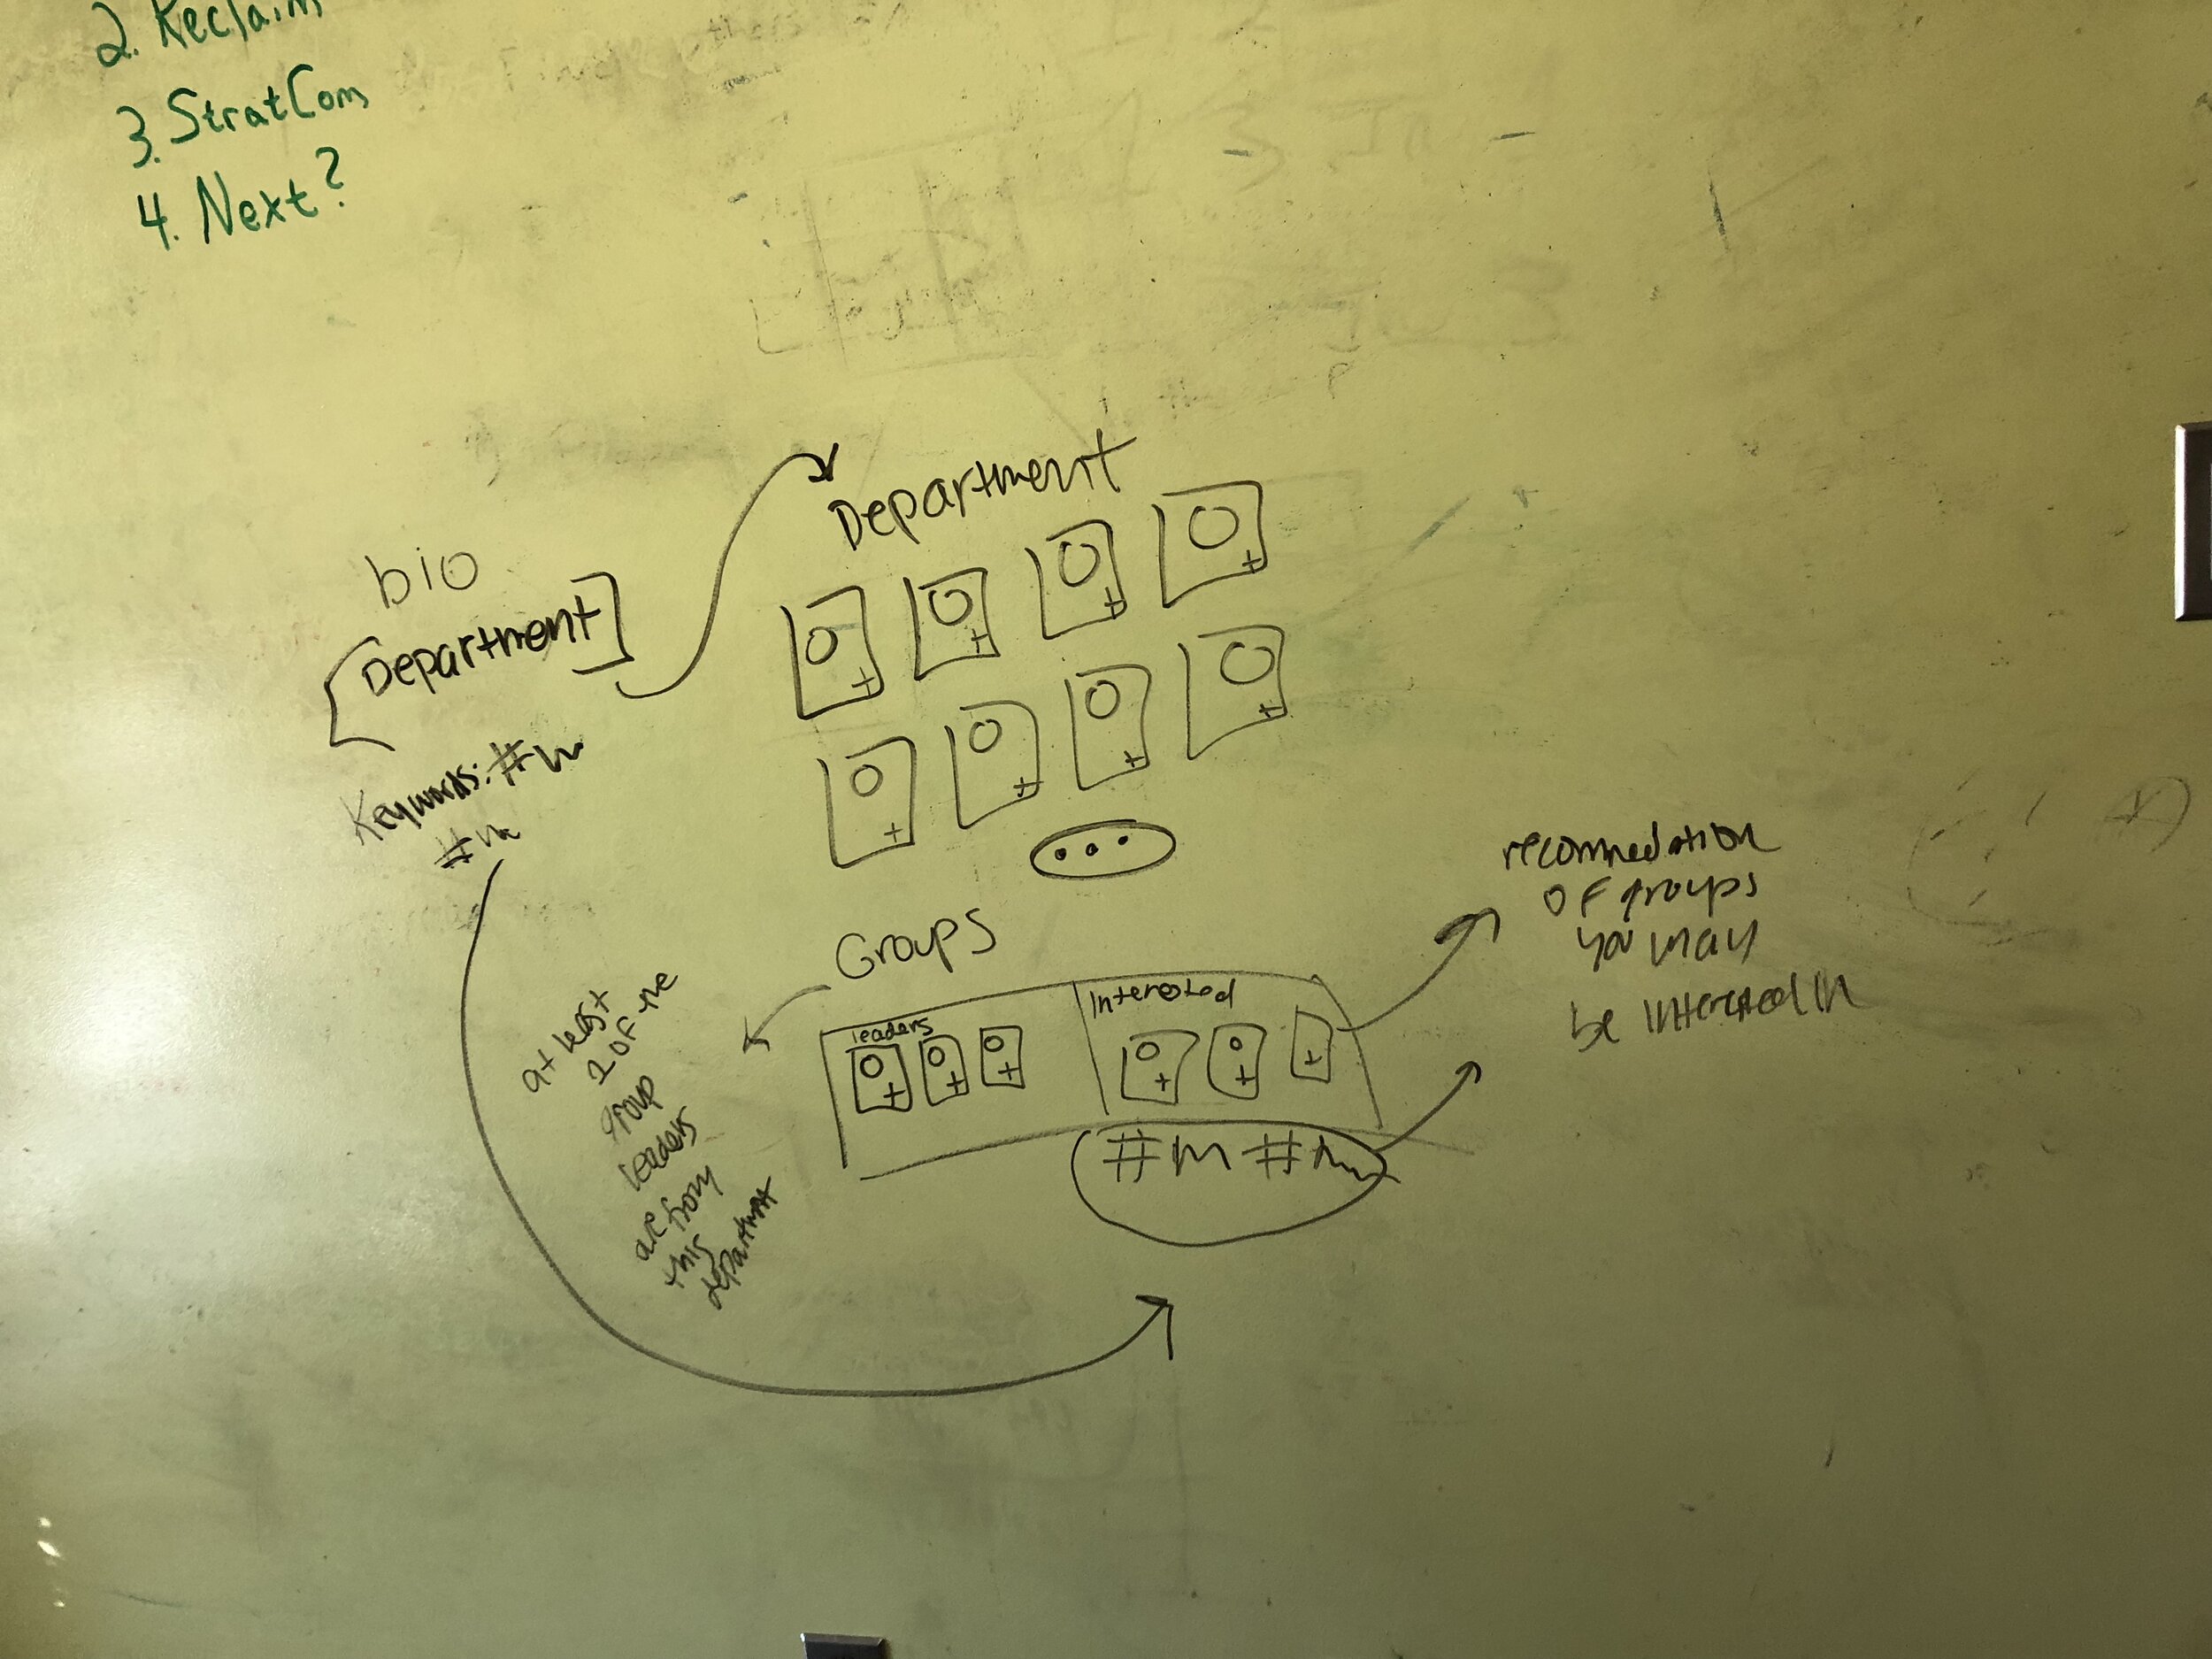 2. Reclaim
3. StratCom
4. Next?
Department
bio
Department
Keywords: #
#
recommedation
of groups
you may
be interested in
Groups
leaders
Interested
at least
2 of the
group
leaders
are from
this
department
#m #m